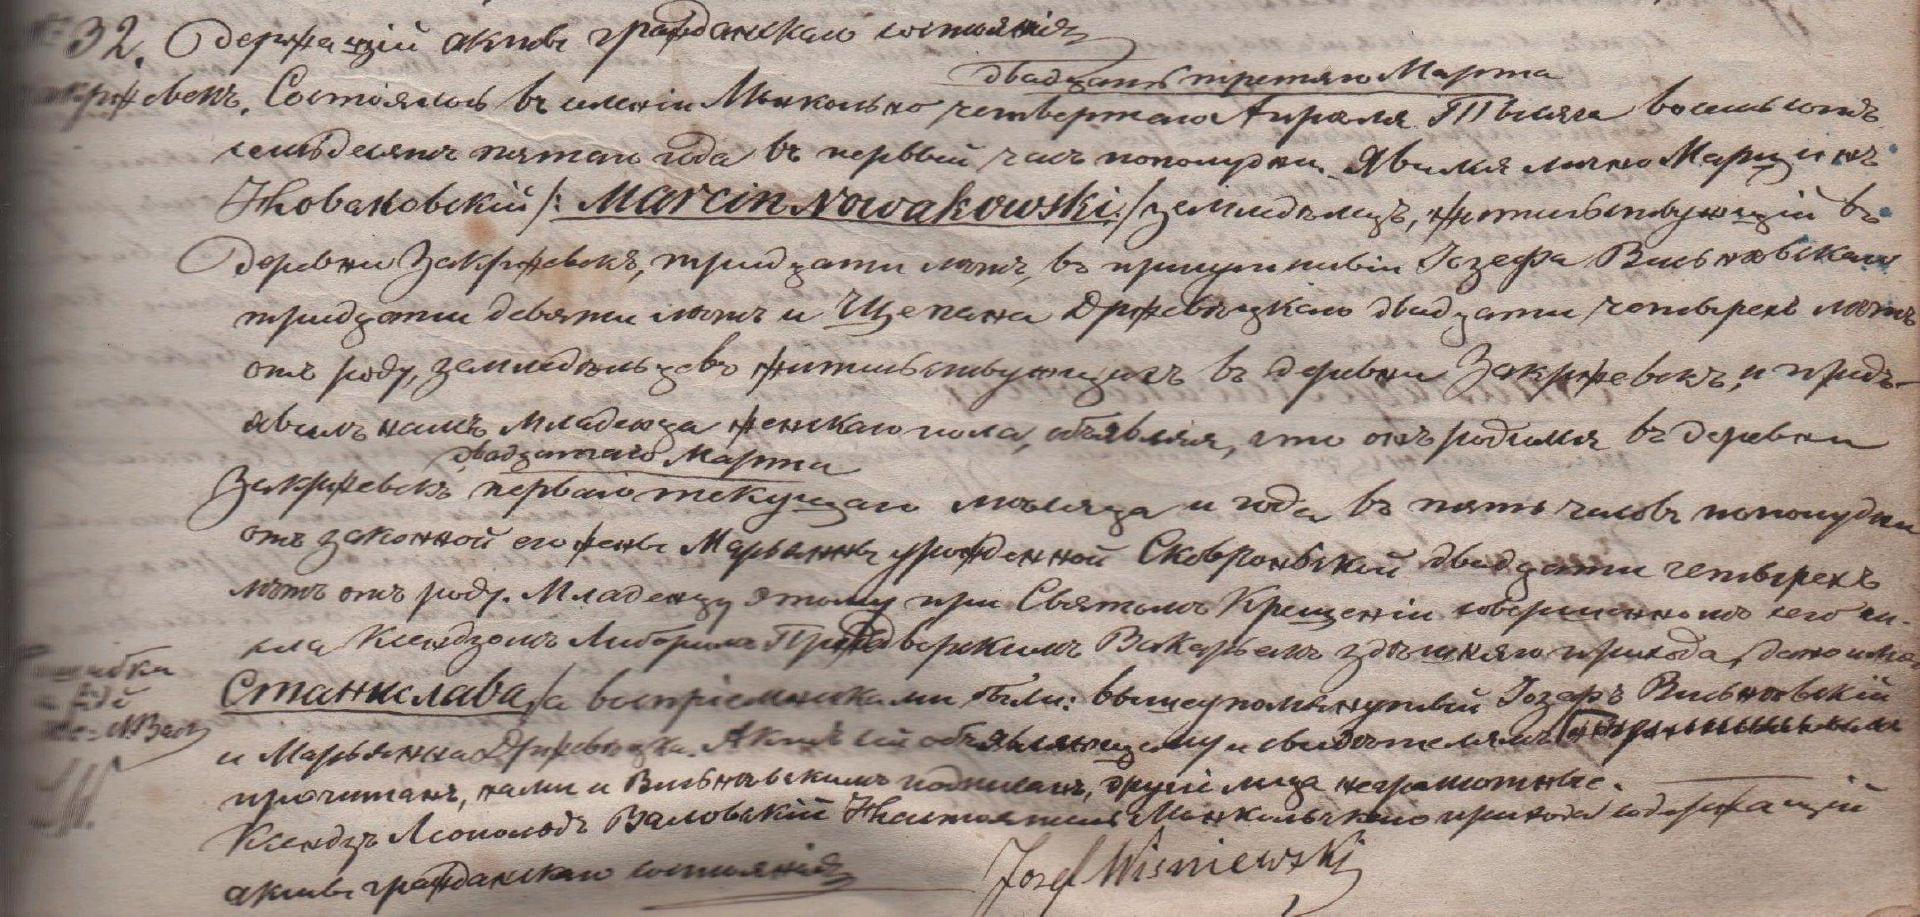 32. Держащій акты гражданскаго состоянія
двадцать третяго Марта
Закржевекъ. Состоялось въ имѣніи Мнихольно четвертаго Апрѣля Тысяча восемьсотъ
семьдесятъ пятаго года въ первый часъ пополудни. Явился лично Марцинъ
Новаковскій /: Marcin Nowakowski :/ земледѣлецъ, жительствующій въ
деревни Закржевекъ, тридцати лѣтъ, въ присутствіи Іозефа Висьневскаго
тридцати девяти лѣтъ и Щепана Држевъцкаго двадцати четырехъ лѣтъ
отъ роду, земледѣльцевъ жительствующихъ въ деревни Закржевекъ, и предъ-
явилъ намъ младенца женскаго пола, объявляя, что онъ родился въ деревни
двадцатаго Марта
Закржевекъ перваго текущаго мѣсяца и года въ пять часовъ пополудни
отъ законной его жены Марьянны урожденной Сковронской двадцати четырехъ
лѣтъ отъ роду. Младенцу этому при Святомъ Крещеніи совершенномъ сего чи-
сла Ксендзомъ Викарьемъ здѣшняго прихода, дано имя
Станислава, а воспріемниками были: вышеупомянутый Іозефъ Висьневскій
и Марьянна Држевъцка. Актъ сей объявляющему и свидѣтелямъ
прочитанъ, нами и Висьневскимъ подписанъ, другіе лица неграмотные.
Ксендзъ Леопольдъ Валовскій Настоятель прихода содержащій
акты гражданскаго состоянія
Jozef Wisniewski